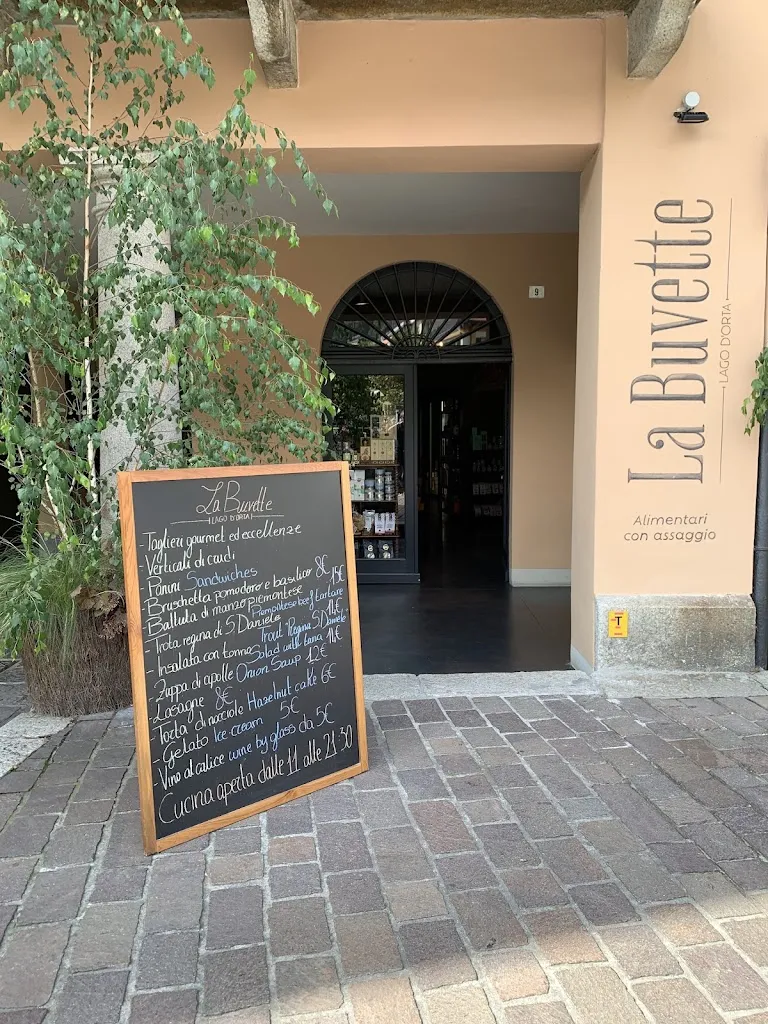 La Buvette
LAGO D'ORTA
- Taglieri gourmet ed eccellenze
- Verticali di crudi
- Panini Sandwiches
- Bruschetta pomodoro e basilico 8€
- Battuta di manzo piemontese 15€
Piemontese beef tartare
- Trota regina di S. Daniele 14€
Trout Regina S. Daniele
- Insalata con tonno Salad with tuna 11€
- Zuppa di cipolle Onion Soup 12€
- Lasagne 8€
- Torta di nocciole Hazelnut cake 6€
- Gelato Ice cream 5€
- Vino al calice wine by glass da 5€
Cucina aperta dalle 11 alle 21:30
9
La Buvette
LAGO D'ORTA
Alimentari
con assaggio
T